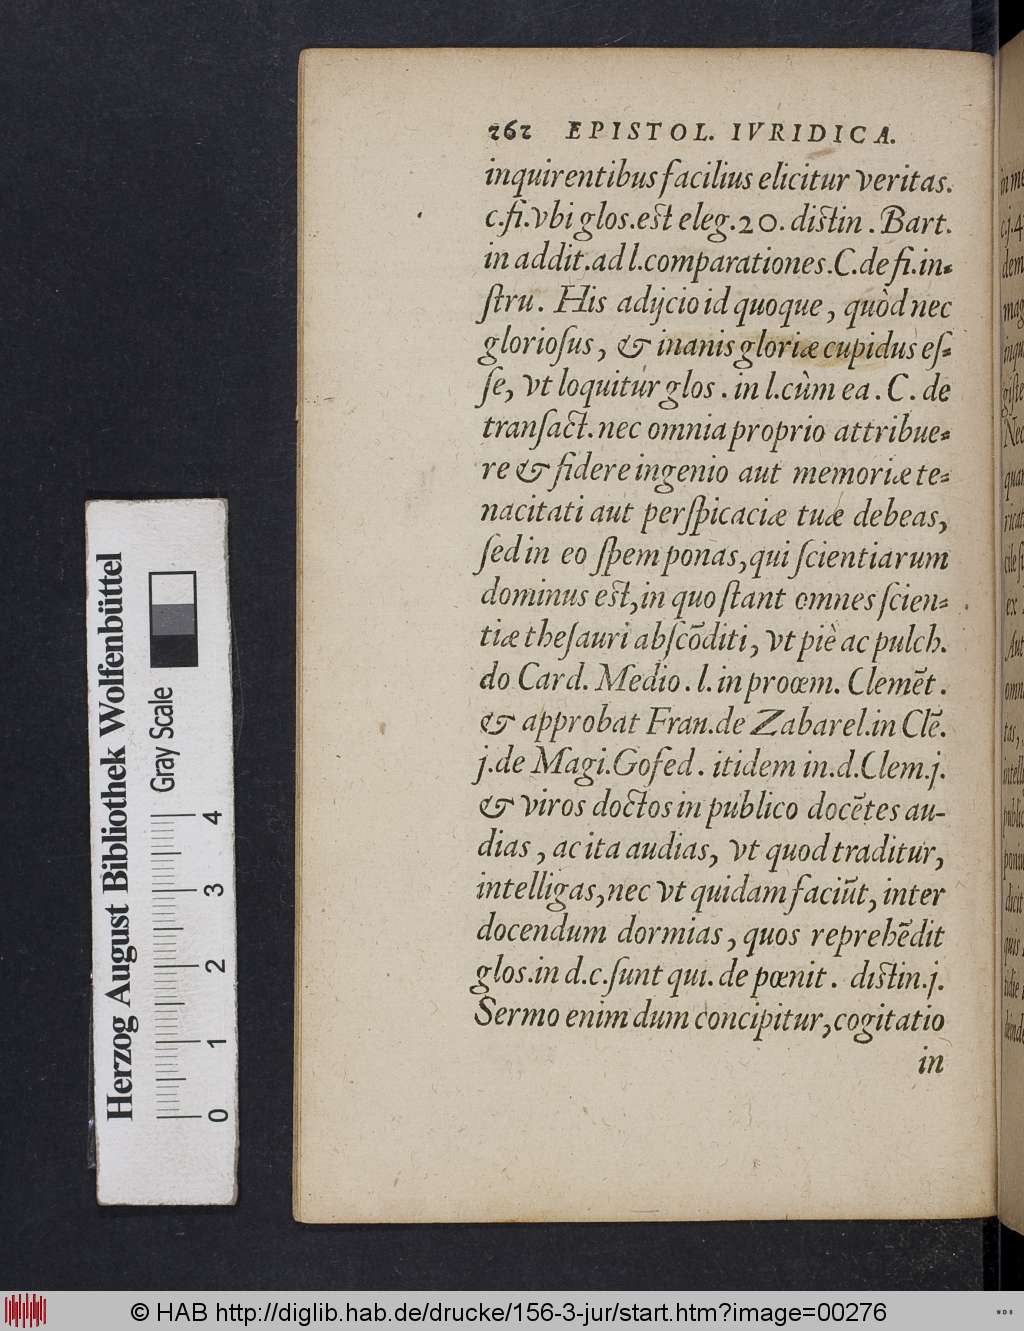 262 EPISTOL. IVRIDICA.
inquirentibus facilius elicitur veritas.
c.fi.vbi glos.est eleg.20. distin . Bart.
in addit.ad l.comparationes.C.de fi.in-
ſtru. His adijcio id quoque, quòd nec
glorioſus, & inanis gloriæ cupidus eſ-
ſe, vt loquitur glos . in l.cùm ea . C . de
tranſact. nec omnia proprio attribue-
re & fidere ingenio aut memoriæ te-
nacitati aut perſpicaciæ tuæ debeas,
ſed in eo ſpem ponas, qui ſcientiarum
dominus est, in quo ſtant omnes ſcien-
tiæ theſauri abſcõditi, vt piè ac pulch.
do Card. Medio . l. in proœm. Clemẽt .
& approbat Fran.de Zabarel.in Clẽ.
j.de Magi.Gofed. itidem in.d.Clem.j.
& viros doctos in publico docẽtes au-
dias , ac ita audias, vt quod traditur,
intelligas, nec vt quidam faciũt, inter
docendum dormias, quos reprehẽdit
glos.in d.c.ſunt qui. de pœnit . distin.j.
Sermo enim dum concipitur, cogitatio
in
Herzog August Bibliothek Wolfenbüttel
Gray Scale
0 1 2 3 4
© HAB http://diglib.hab.de/drucke/156-3-jur/start.htm?image=00276